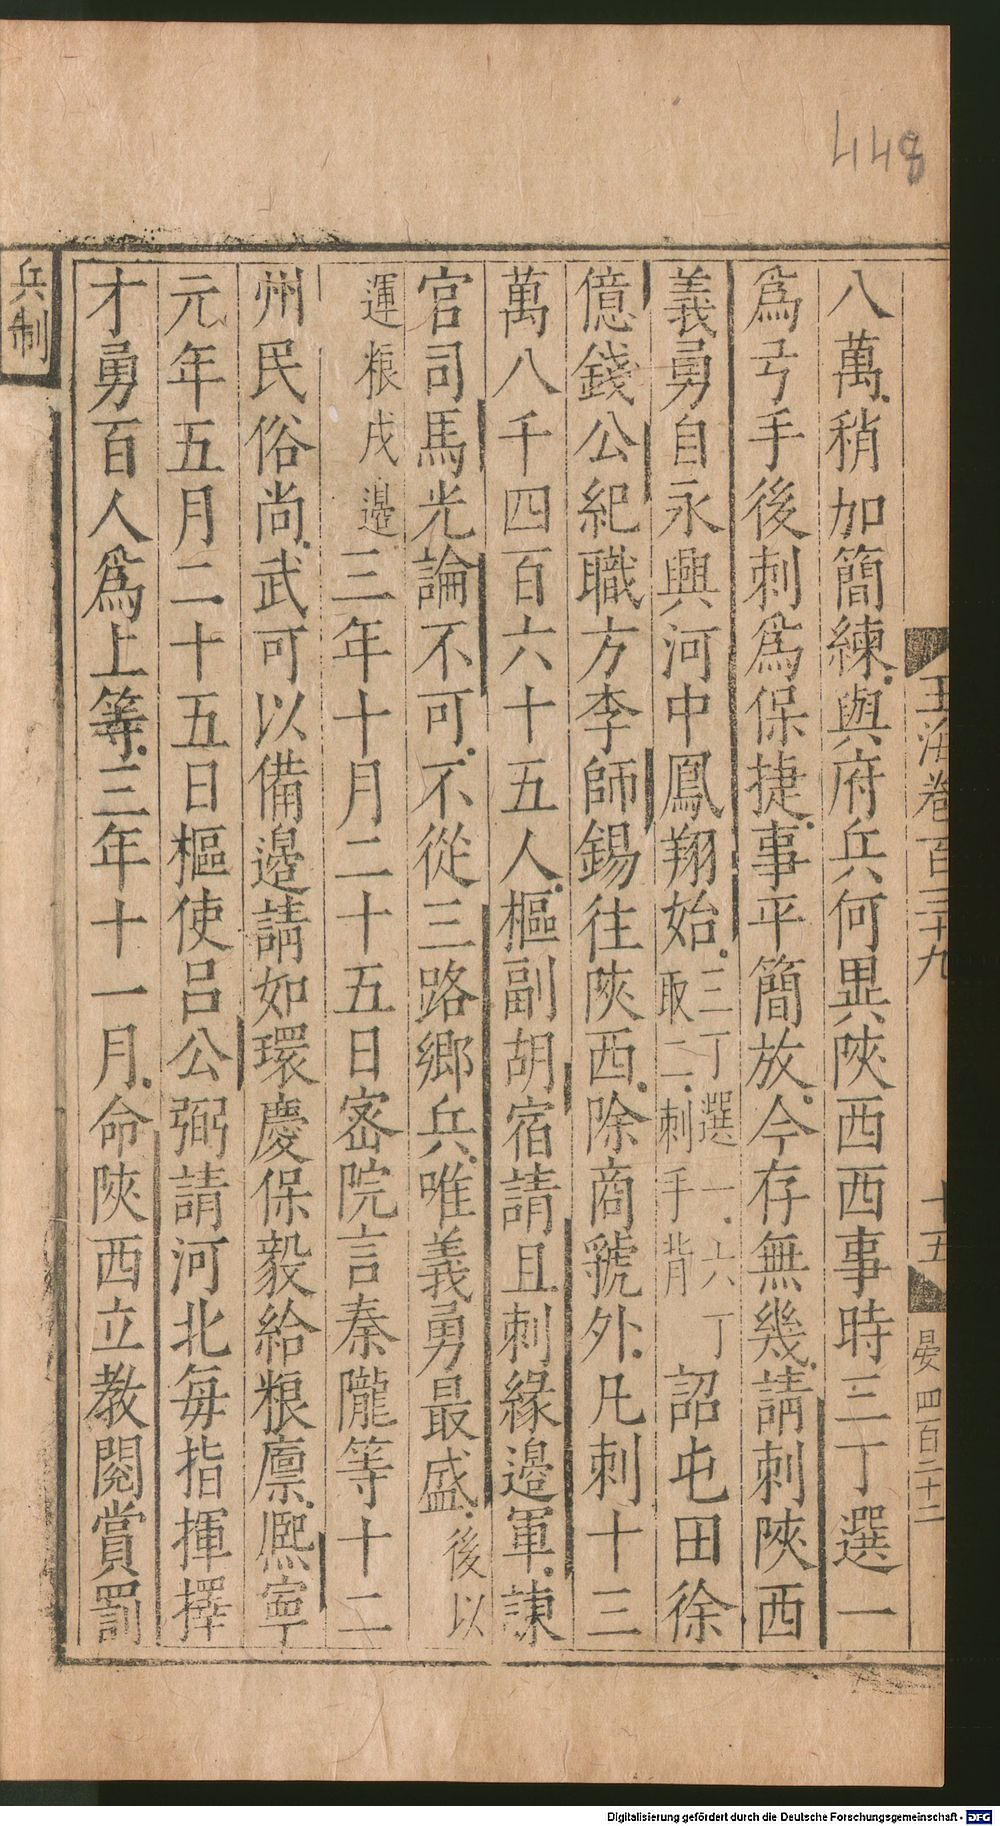 448
玉海卷百三十九
十五
晏四百二十二
八萬稍加簡練與府兵何異陜西西事時三丁選一
爲弓手後刺爲保捷事平簡放今存無幾請刺陜西
義勇自永興河中鳳翔始三丁選一六丁取二刺手背詔屯田徐
億錢公紀職方李師錫往陜西除商虢外凡刺十三
萬八千四百六十五人樞副胡宿請且刺緣邊軍諫
官司馬光論不可不從三路鄉兵唯義勇最盛後以
運粮戍邊三年十月二十五日密院言秦隴等十二
州民俗尚武可以備邊請如環慶保毅給粮廪熈寧
元年五月二十五日樞使呂公弼請河北每指揮擇
才勇百人爲上等三年十一月命陜西立教閱賞罰
兵制
Digitalisierung gefördert durch die Deutsche Forschungsgemeinschaft - DFG